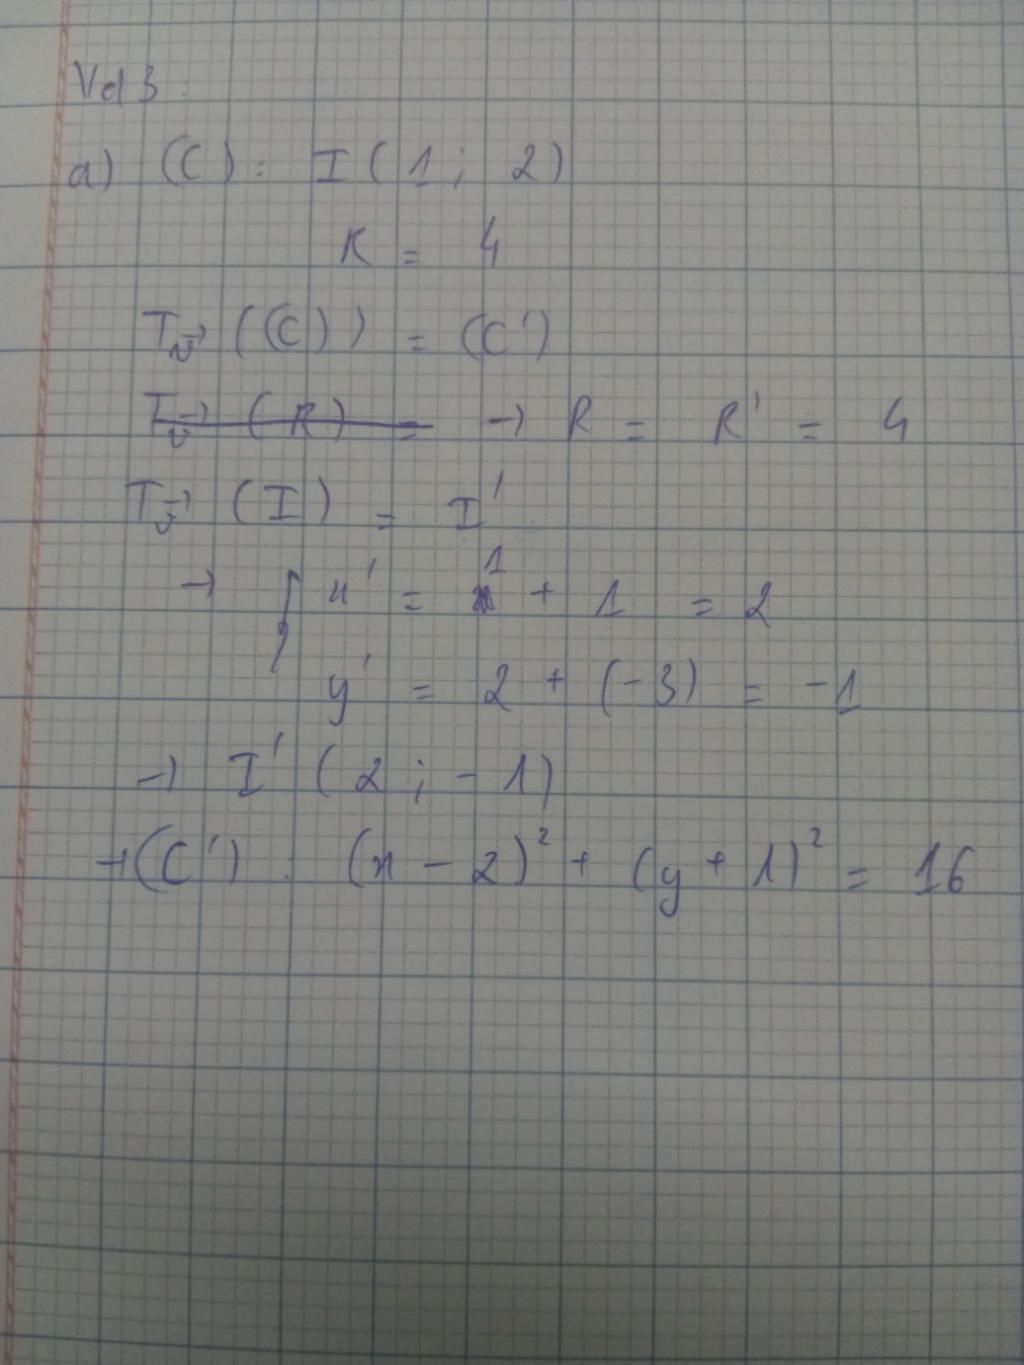 Vd 3 :
a) (C) : I ( 1 ; 2 )
R = 4
T_v⃗ ((C)) = (C')
T_v⃗ (R) = → R = R' = 4
T_v⃗ (I) = I'
→ { x' = 1 + 1 = 2
y' = 2 + (-3) = -1
→ I' ( 2 ; - 1)
→ (C') : (x - 2)² + (y + 1)² = 16